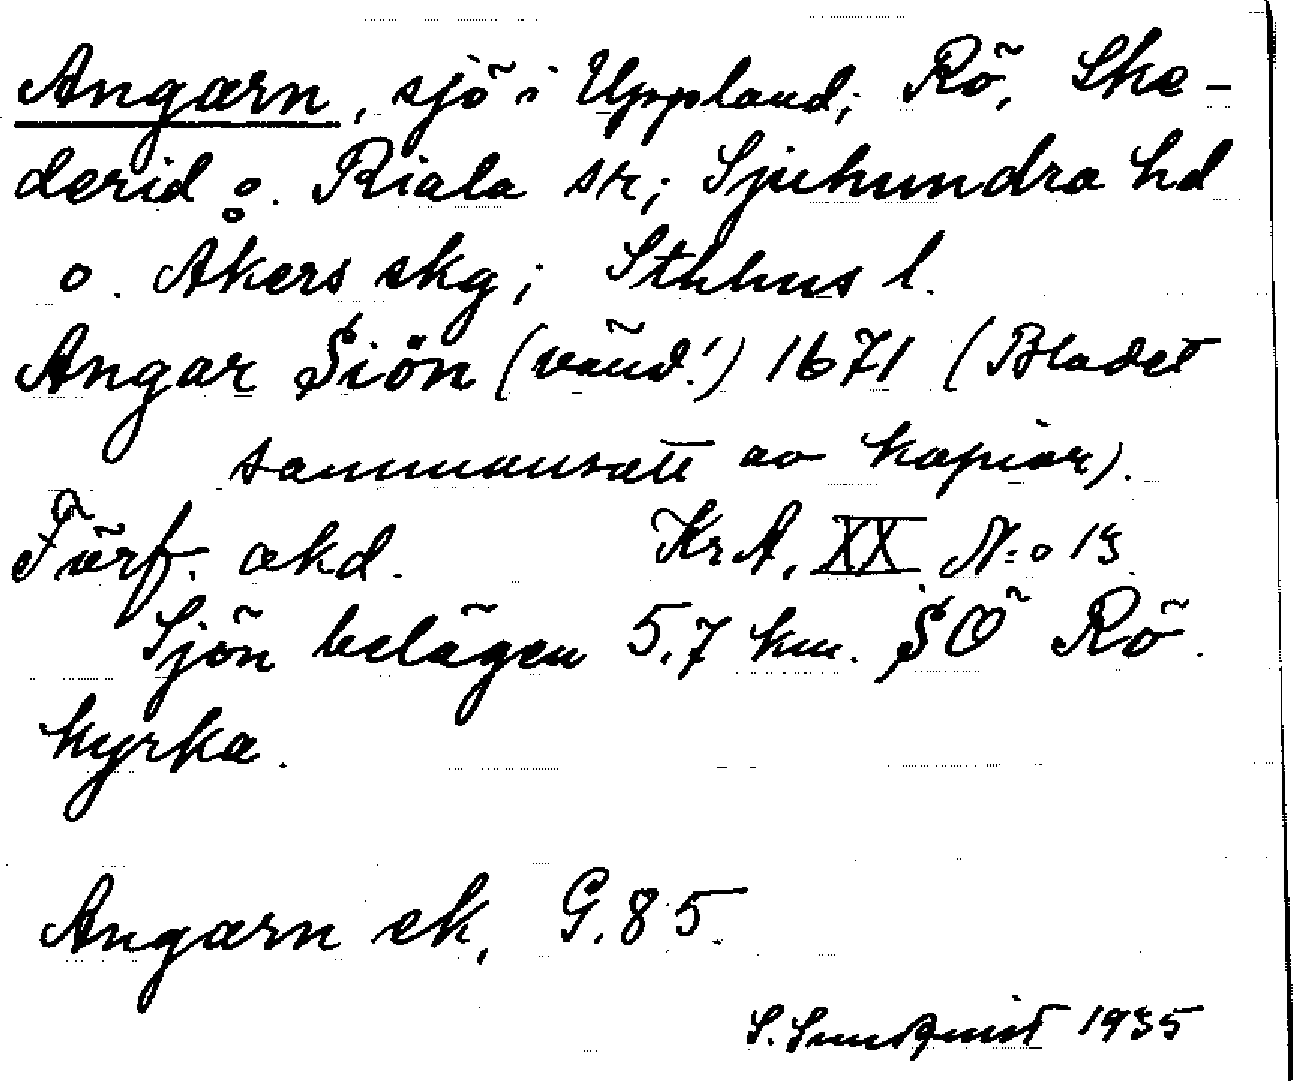 Angarn, sjö i Uppland; Rö, Ske-
derid o. Riala sr; Sjuhundra hd
o. Åkers skg; Sthlms l.
Angar Siön (vänd!) 1671 (Bladet
sammansatt av kopior).
Förf. okd. KrA, XX N:o 13.
Sjön belägen 5,7 km. SÖ Rö
kyrka.
Angarn ek, G. 85.
S. Sundquist 1935